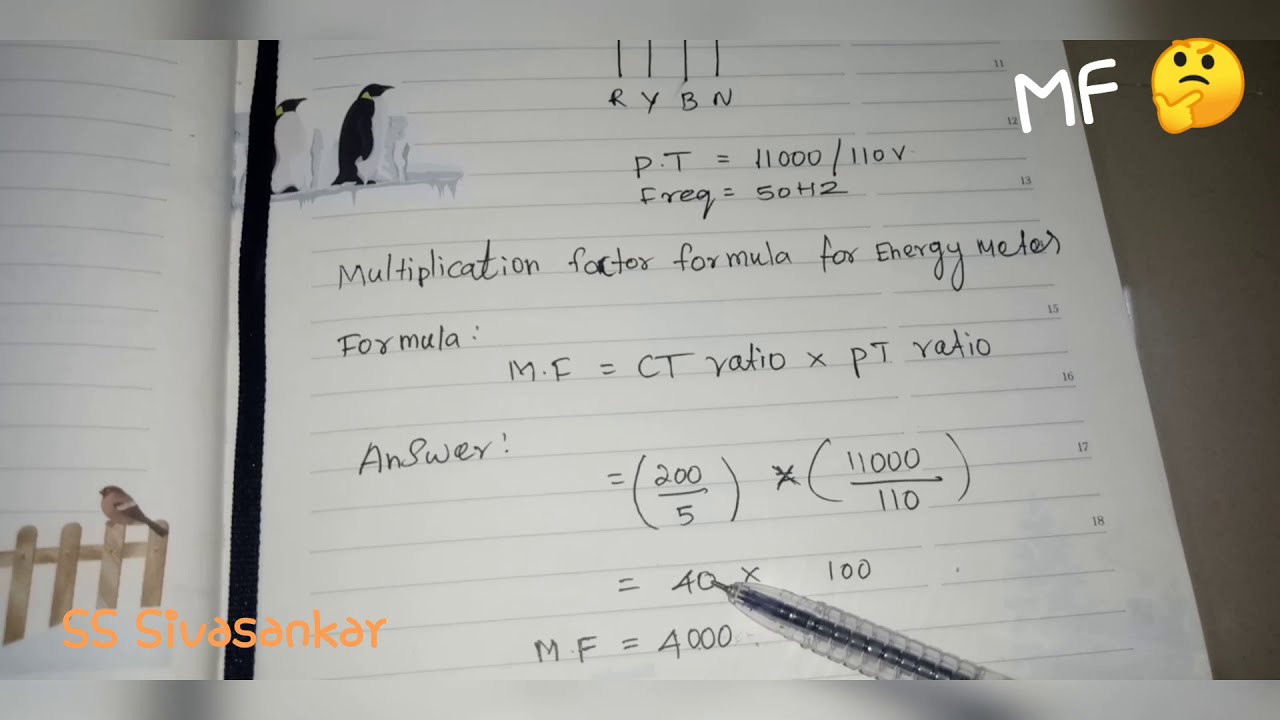 11
MF 🤔
R Y B N
12
P.T = 11000/110V
Freq = 50HZ
13
Multiplication factor formula for Energy Meter
15
Formula:
M.F = CT ratio × PT ratio
16
Answer:
= (200/5) × (11000/110)
17
18
= 40 × 100
SS Sivasankar
M.F = 4000